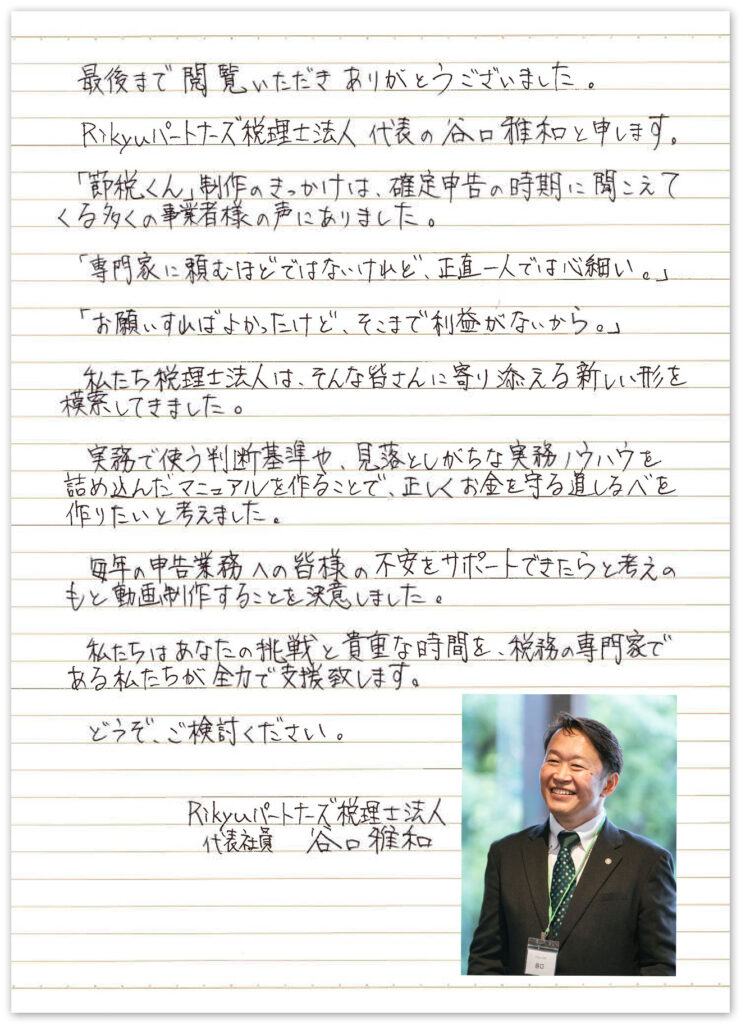 最後まで閲覧いただきありがとうございました。
Rikyuパートナーズ税理士法人 代表の谷口雅和と申します。
「節税くん」制作のきっかけは、確定申告の時期に聞こえて
くる多くの事業者様の声にありました。
「専門家に頼むほどではないけれど、正直一人では心細い。」
「お願いすればよかったけど、そこまで利益がないから。」
私たち税理士法人は、そんな皆さんに寄り添える新しい形を
模索してきました。
実務で使う判断基準や、見落としがちな実務ノウハウを
詰め込んだマニュアルを作ることで、正しくお金を守る道しるべを
作りたいと考えました。
毎年の申告業務への皆様の不安をサポートできたらと考えの
もと動画制作することを決意しました。
私たちはあなたの挑戦と貴重な時間を、税務の専門家で
ある私たちが全力で支援致します。
どうぞ、ご検討ください。
Rikyuパートナーズ税理士法人
代表社員 谷口雅和
谷口